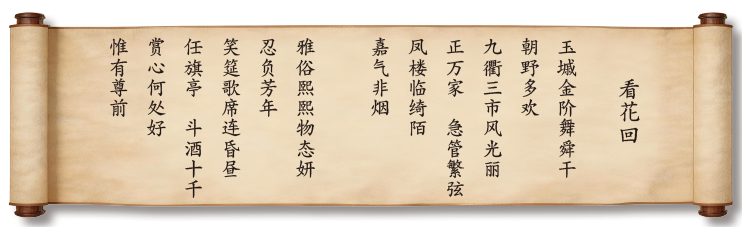 看花回
玉城金阶舞舜干
朝野多欢
九衢三市风光丽
正万家　急管繁弦
凤楼临绮陌
嘉气非烟
雅俗熙熙物态妍
忍负芳年
笑筵歌席连昏昼
任旗亭　斗酒十千
赏心何处好
惟有尊前